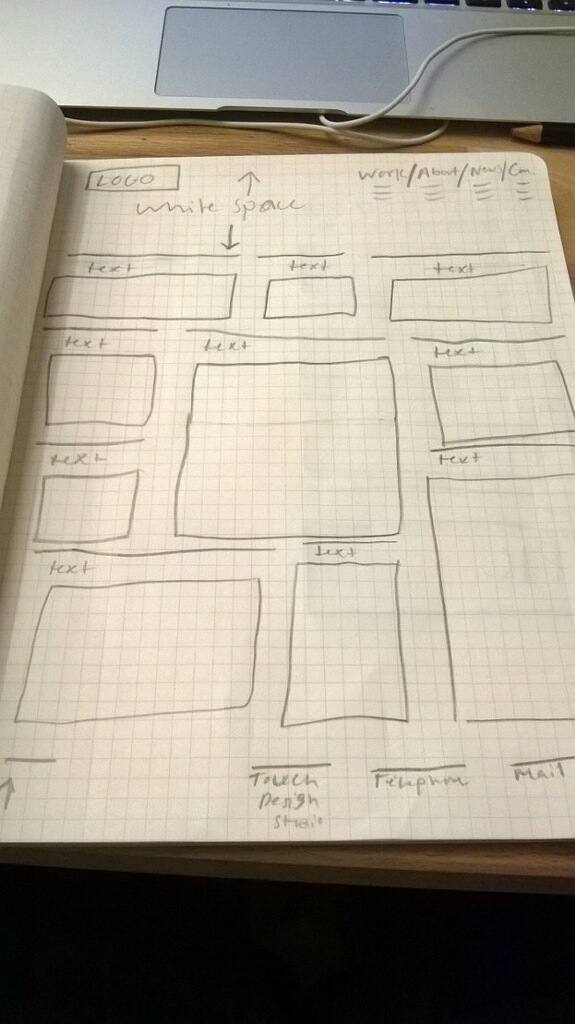 LOGO
Work/About/News/Con.
white space
text
text
text
text
text
text
text
text
text
text
Touch
Design
Studio
Telephone
Mail